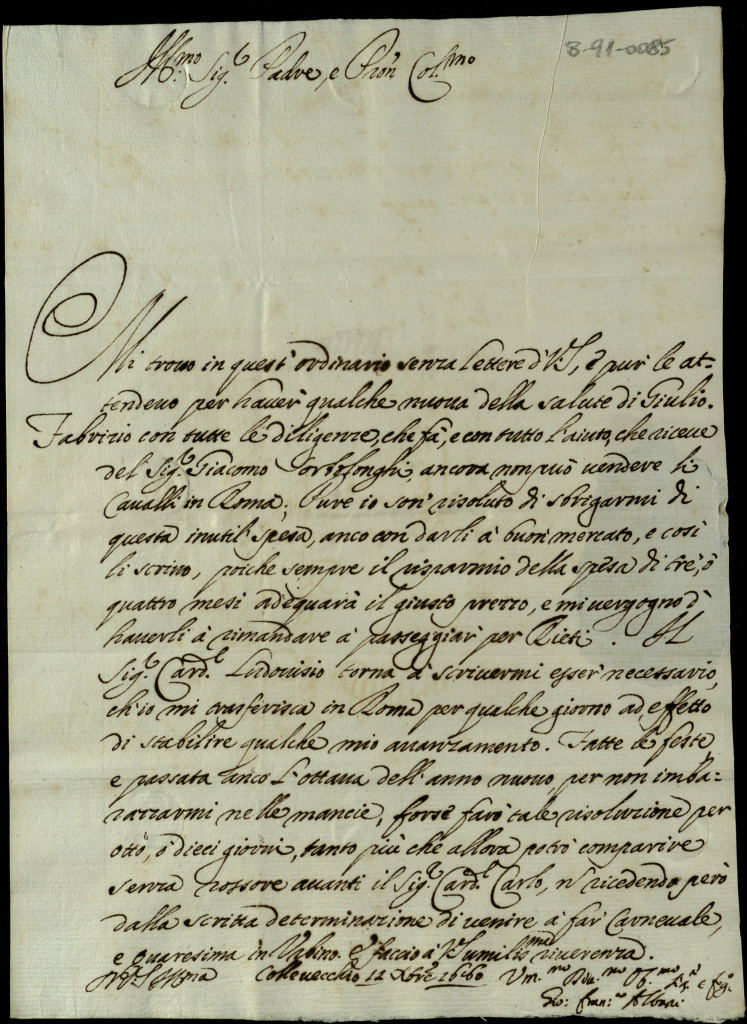 8-91-0085
Ill.mo Sig.r Padre, e Pron Col.mo
Mi trovo in quest' ordinario senza lettere di V.S., e pur le at=
tendevo per haver qualche nuova della salute di Giulio.
Fabrizio con tutte le diligenze, che fà, e con tutto l'aiuto, che riceve
del Sig.r Giacomo ancora non può vendere li
Cavalli in Roma; Pure io son risoluto di sbrigarmi di
questa inutil spesa, anco con darli à buon mercato, e così
li scrivo, poiche sempre il risparmio della spesa di trè, ò
quattro mesi adequarà il giusto prezzo, e mi vergogno d'
haverli à rimandare à passeggiar per Rieti. Il
Sig.r Card.l Ludovisio torna à scrivermi esser necessario,
ch'io mi trasferisca in Roma per qualche giorno ad effetto
di stabilire qualche mio avanzamento. Fatte le feste,
e passata anco l'ottava dell'anno nuovo, per non imba=
razzarmi nelle mancie, forse farò tale risoluzione per
otto, ò dieci giorni, tanto più che allora potrò comparire
senza rossore avanti il Sig.r Card.l Carlo, n' ricedendo però
dalla scritta determinazione di venire à far Carnevale,
e quaresima in Urbino. E faccio à V.S. umiliss.ma riverenza.
Di V.S. Ill.ma Collevecchio 12 Xbre 1660 Um.mo Dev.mo Ob.mo S.r e fig.o
Gio: Fran.co Albani